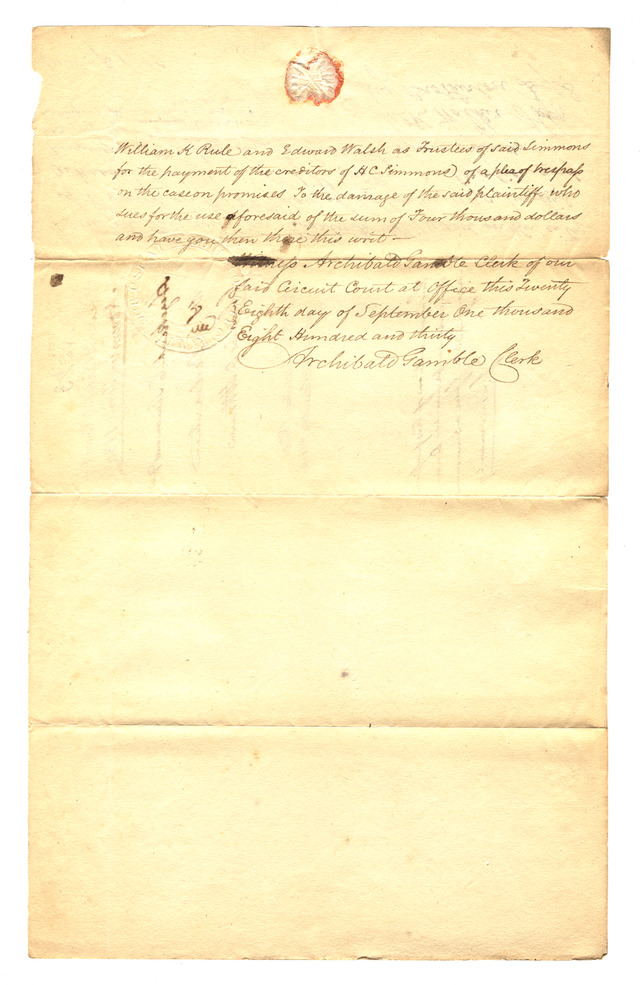 William K Rule and Edward Walsh as Trustees of said Simmons
for the payment of the creditors of H C Simmons) of a plea of trespass
on the case on promises To the damage of the said plaintiff who
sues for the use aforesaid of the sum of Four thousand dollars
and have you then there this writ —
Witness Archibald Gamble Clerk of our
said Circuit Court at Office this Twenty
Eighth day of September One thousand
Eight Hundred and thirty
Archibald Gamble Clerk